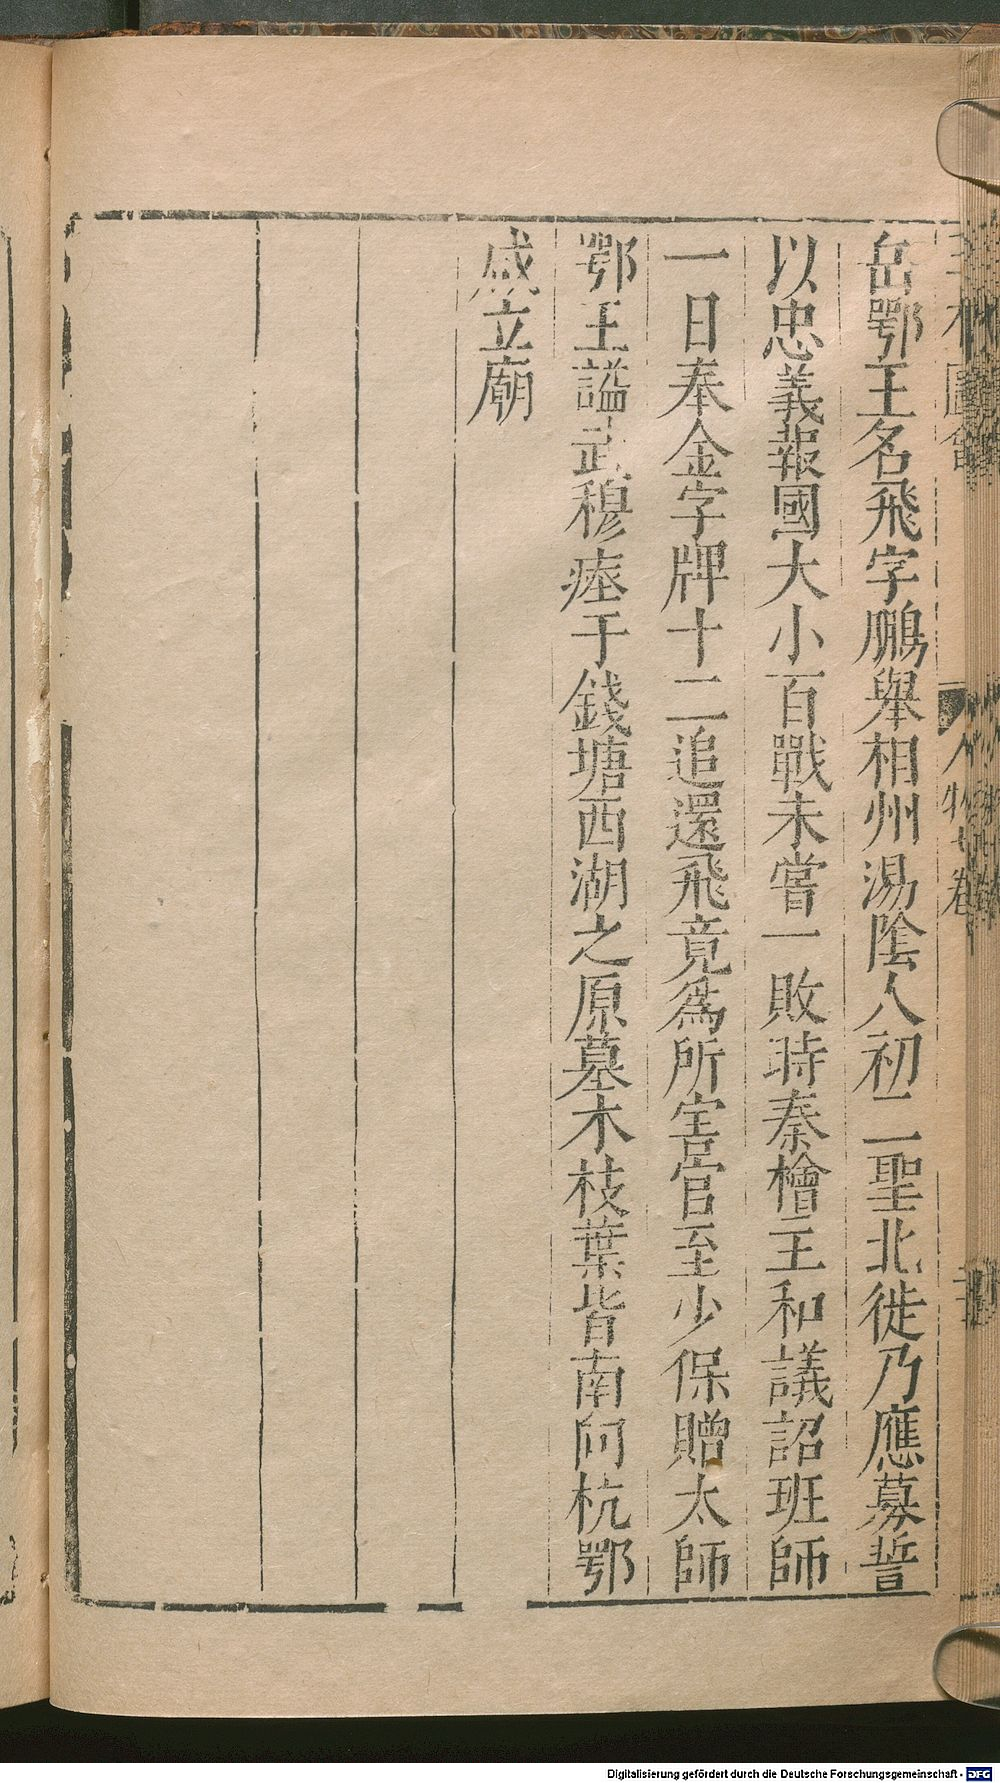 岳鄂王名飛字鵬舉相州湯陰人初二聖北徙乃應募誓
以忠義報國大小百戰未嘗一敗時秦檜主和議詔班師
一日奉金字牌十二追還飛竟爲所害官至少保贈太師
鄂王謚武穆瘞于錢塘西湖之原墓木枝葉皆南向杭鄂
咸立廟
人物七卷
Digitalisierung gefördert durch die Deutsche Forschungsgemeinschaft - DFG